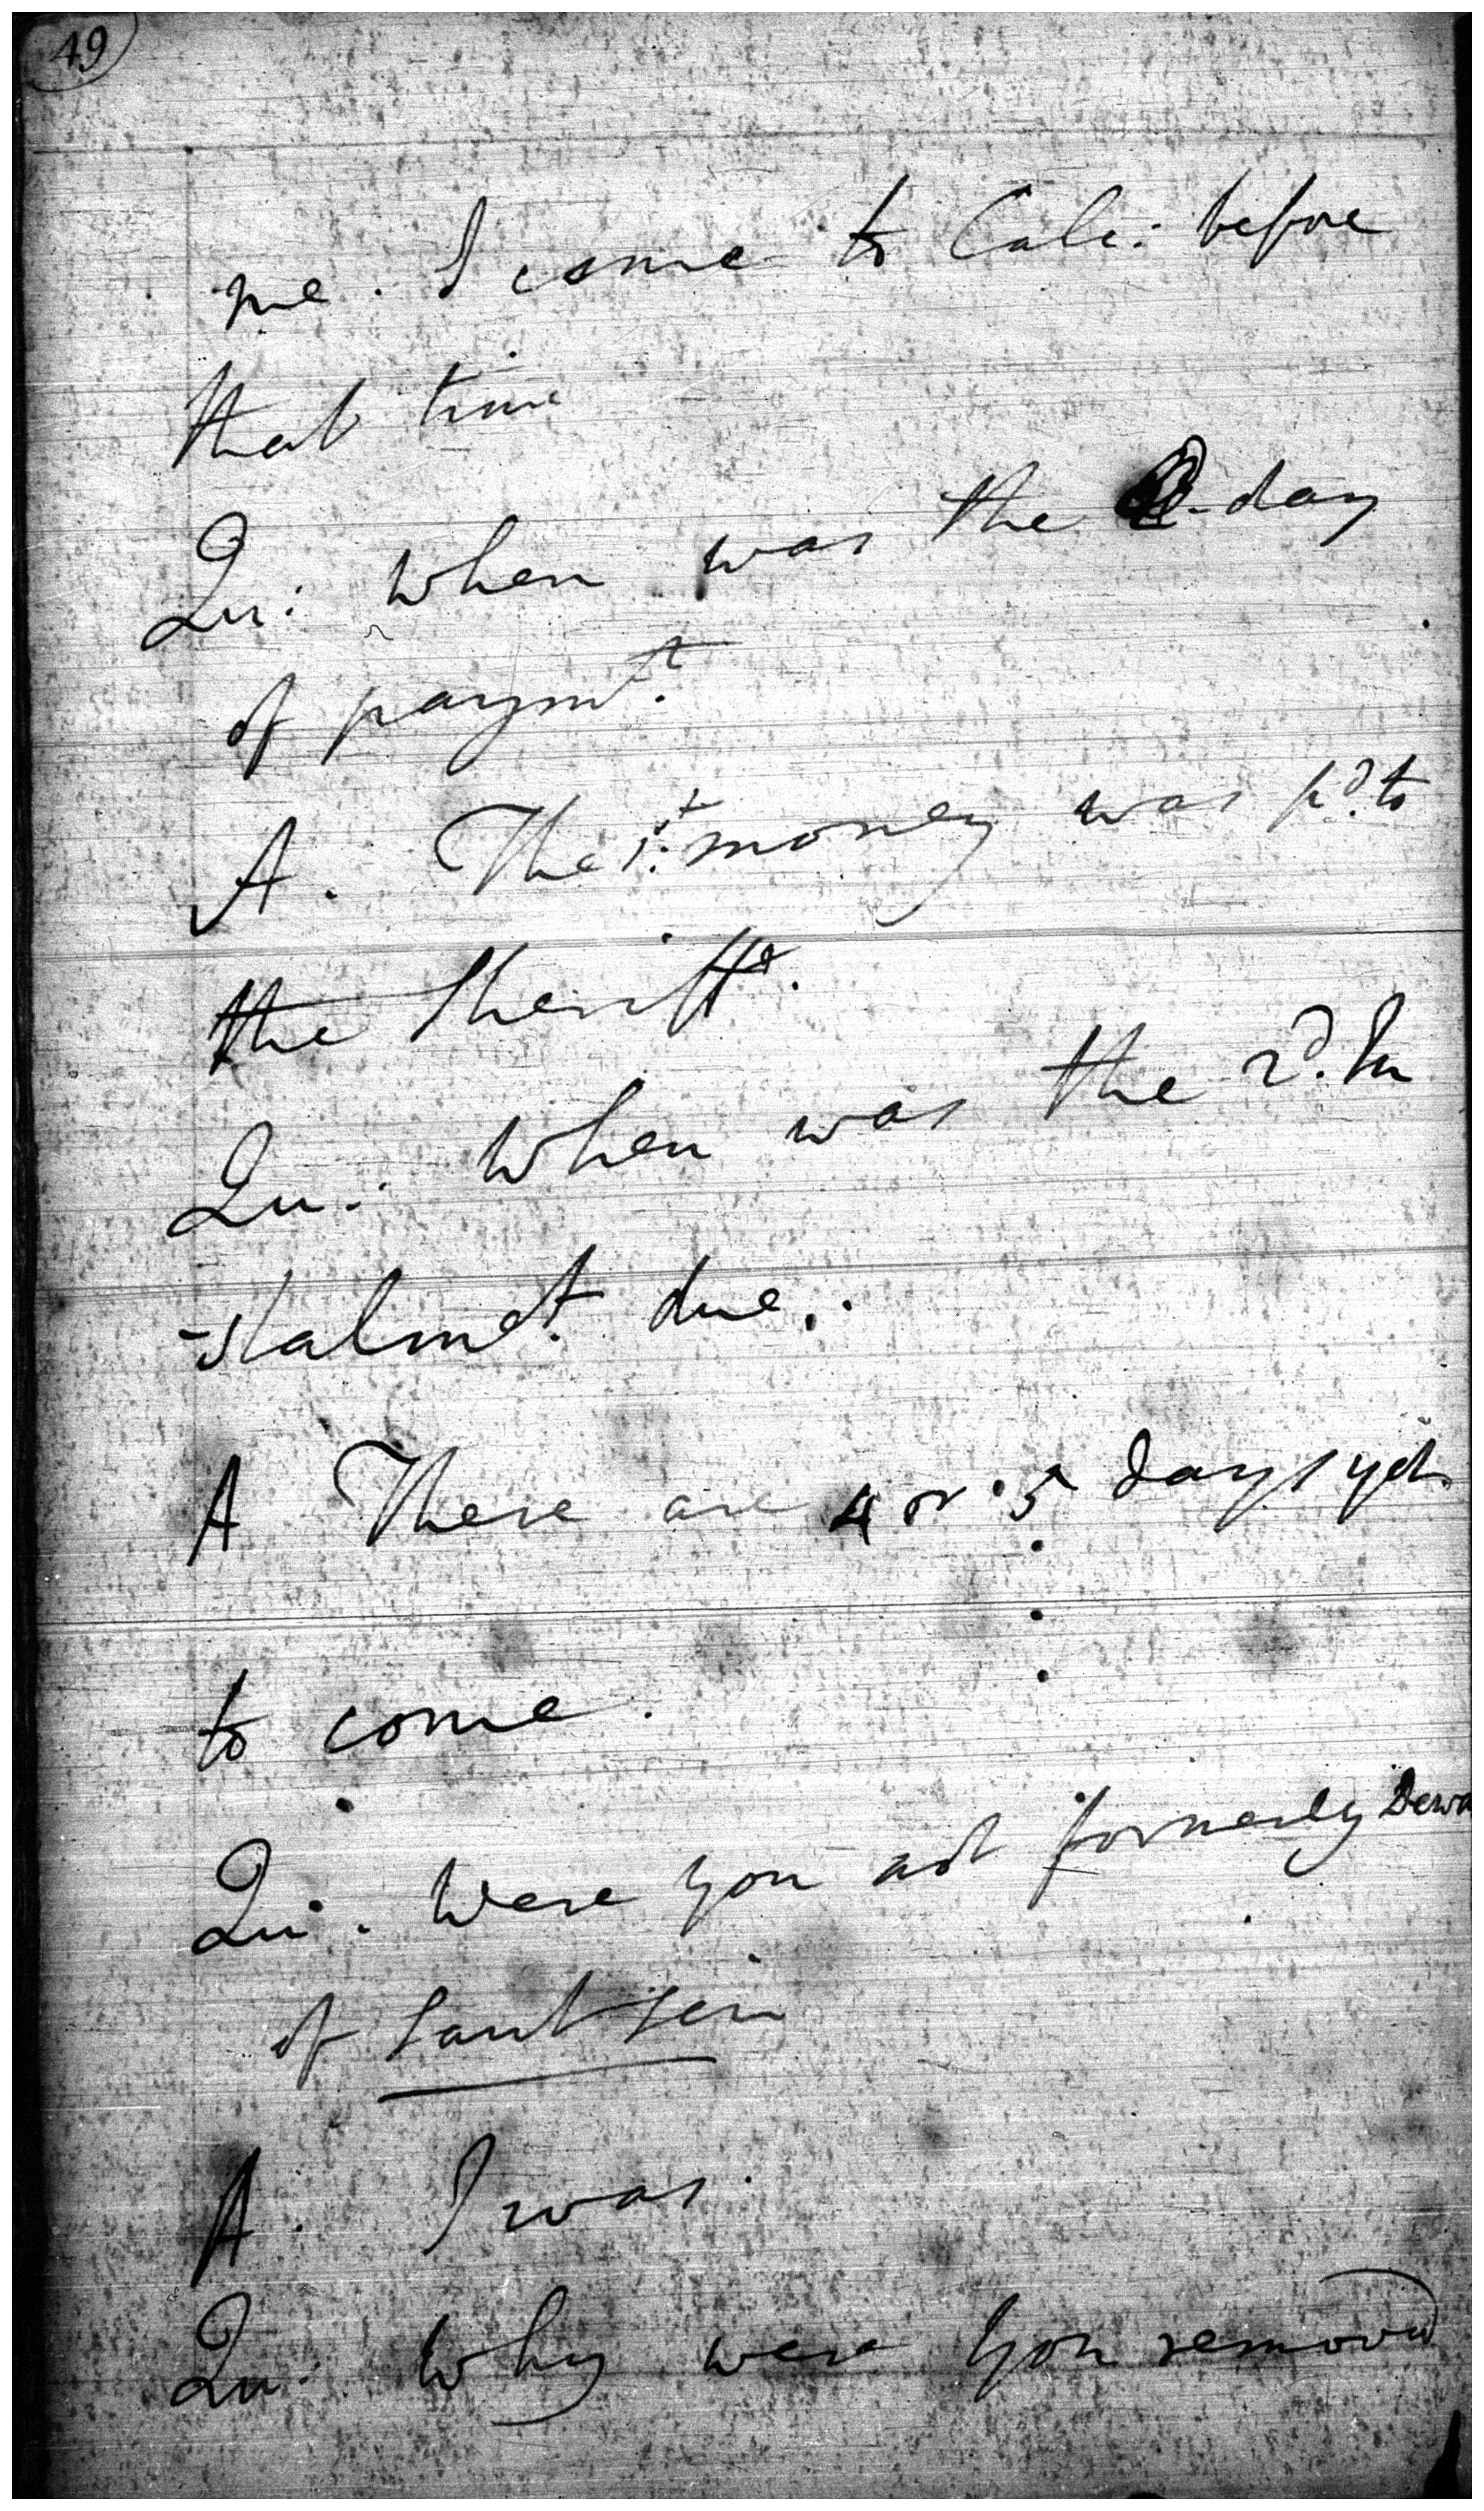 49
me. I come to Calc: before
that time
Qu: when was the day
of paymt.
A. The 1st. money was pd. to
the Sheriff.
Qu: When was the 2d. In
-stalmet. due.
A There are 4 or 5 days yet
to come.
Qu: Were you not formerly Dewa
of
A. I was.
Qu: Why were you removed